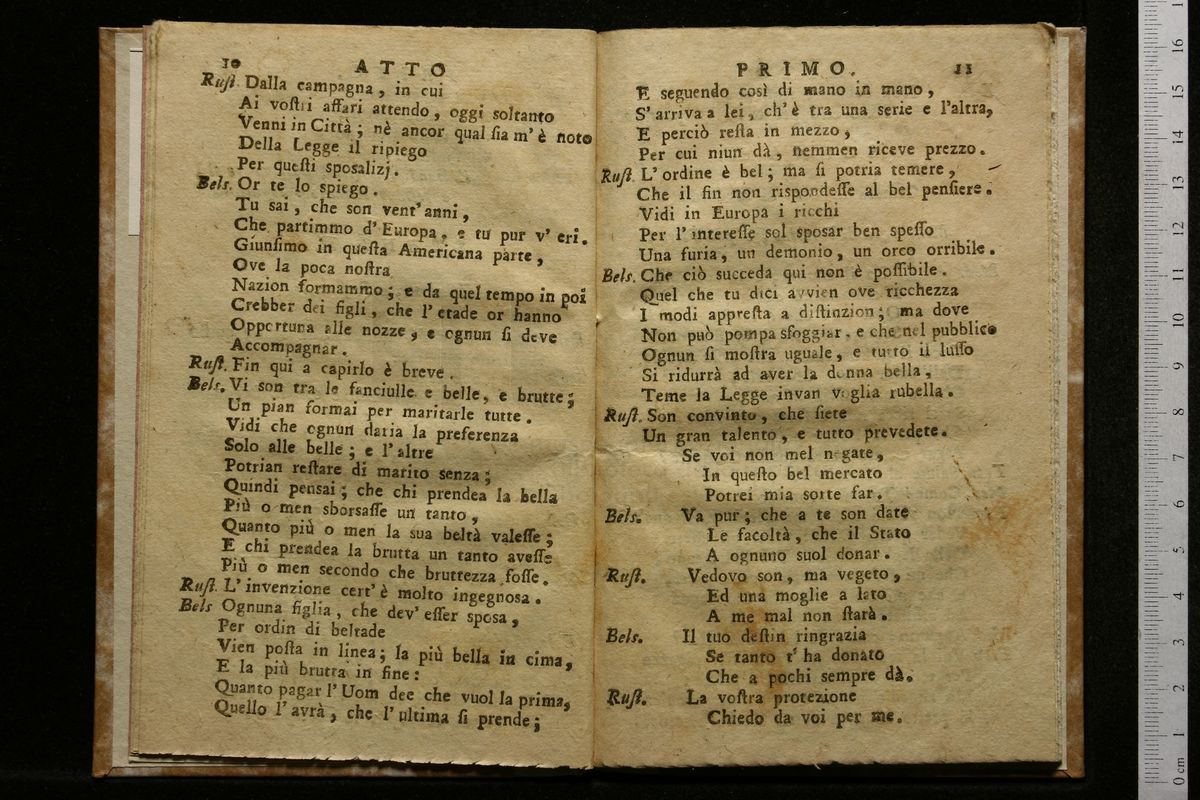 10 ATTO
Ruſt. Dalla campagna, in cui
Ai voſtri affari attendo, oggi soltanto
Venni in Città; nè ancor qual ſia m'è noto
Della Legge il ripiego
Per queſti sposalizj.
Bels. Or te lo spiego.
Tu sai, che son vent'anni,
Che partimmo d'Europa, e tu pur v'eri.
Giunſimo in queſta Americana parte,
Ove la poca noſtra
Nazion formammo; e da quel tempo in poi
Crebber dei figli, che l'etade or hanno
Opportuna alle nozze, e ognun ſi deve
Accompagnar.
Ruſt. Fin qui a capirlo è breve.
Bels. Vi son tra le fanciulle e belle, e brutte;
Un pian formai per maritarle tutte.
Vidi che ognun daria la preferenza
Solo alle belle; e l'altre
Potrian reſtare di marito senza;
Quindi pensai; che chi prendea la bella
Più o men sborsaſſe un tanto,
Quanto più o men la sua beltà valeſſe;
E chi prendea la brutta un tanto aveſſe
Più o men secondo che bruttezza foſſe.
Ruſt. L'invenzione cert'è molto ingegnosa.
Bels Ognuna figlia, che dev'eſſer sposa,
Per ordin di beltade
Vien poſta in linea; la più bella in cima,
E la più brutta in fine:
Quanto pagar l'Uom dee che vuol la prima,
Quello l'avrà, che l'ultima ſi prende;
PRIMO. 11
E seguendo così di mano in mano,
S'arriva a lei, ch'è tra una serie e l'altra,
E perciò reſta in mezzo,
Per cui niun dà, nemmen riceve prezzo.
Ruſt. L'ordine è bel; ma ſi potria temere,
Che il fin non rispondeſſe al bel penſiere.
Vidi in Europa i ricchi
Per l'intereſſe sol sposar ben speſſo
Una furia, un demonio, un orco orribile.
Bels. Che ciò succeda qui non è poſſibile.
Quel che tu dici avvien ove ricchezza
I modi appreſta a diſtinzion; ma dove
Non può pompa sfoggiar, e che nel pubblico
Ognun ſi moſtra uguale, e tutto il luſſo
Si ridurrà ad aver la donna bella,
Teme la Legge invan voglia rubella.
Ruſt. Son convinto, che ſiete
Un gran talento, e tutto prevedete.
Se voi non mel negate,
In queſto bel mercato
Potrei mia sorte far.
Bels. Va pur; che a te son date
Le facoltà, che il Stato
A ognuno suol donar.
Ruſt. Vedovo son, ma vegeto,
Ed una moglie a lato
A me mal non ſtarà.
Bels. Il tuo deſtin ringrazia
Se tanto t'ha donato
Che a pochi sempre dà.
Ruſt. La voſtra protezione
Chiedo da voi per me.
0 cm 1 2 3 4 5 6 7 8 9 10 11 12 13 14 15 16